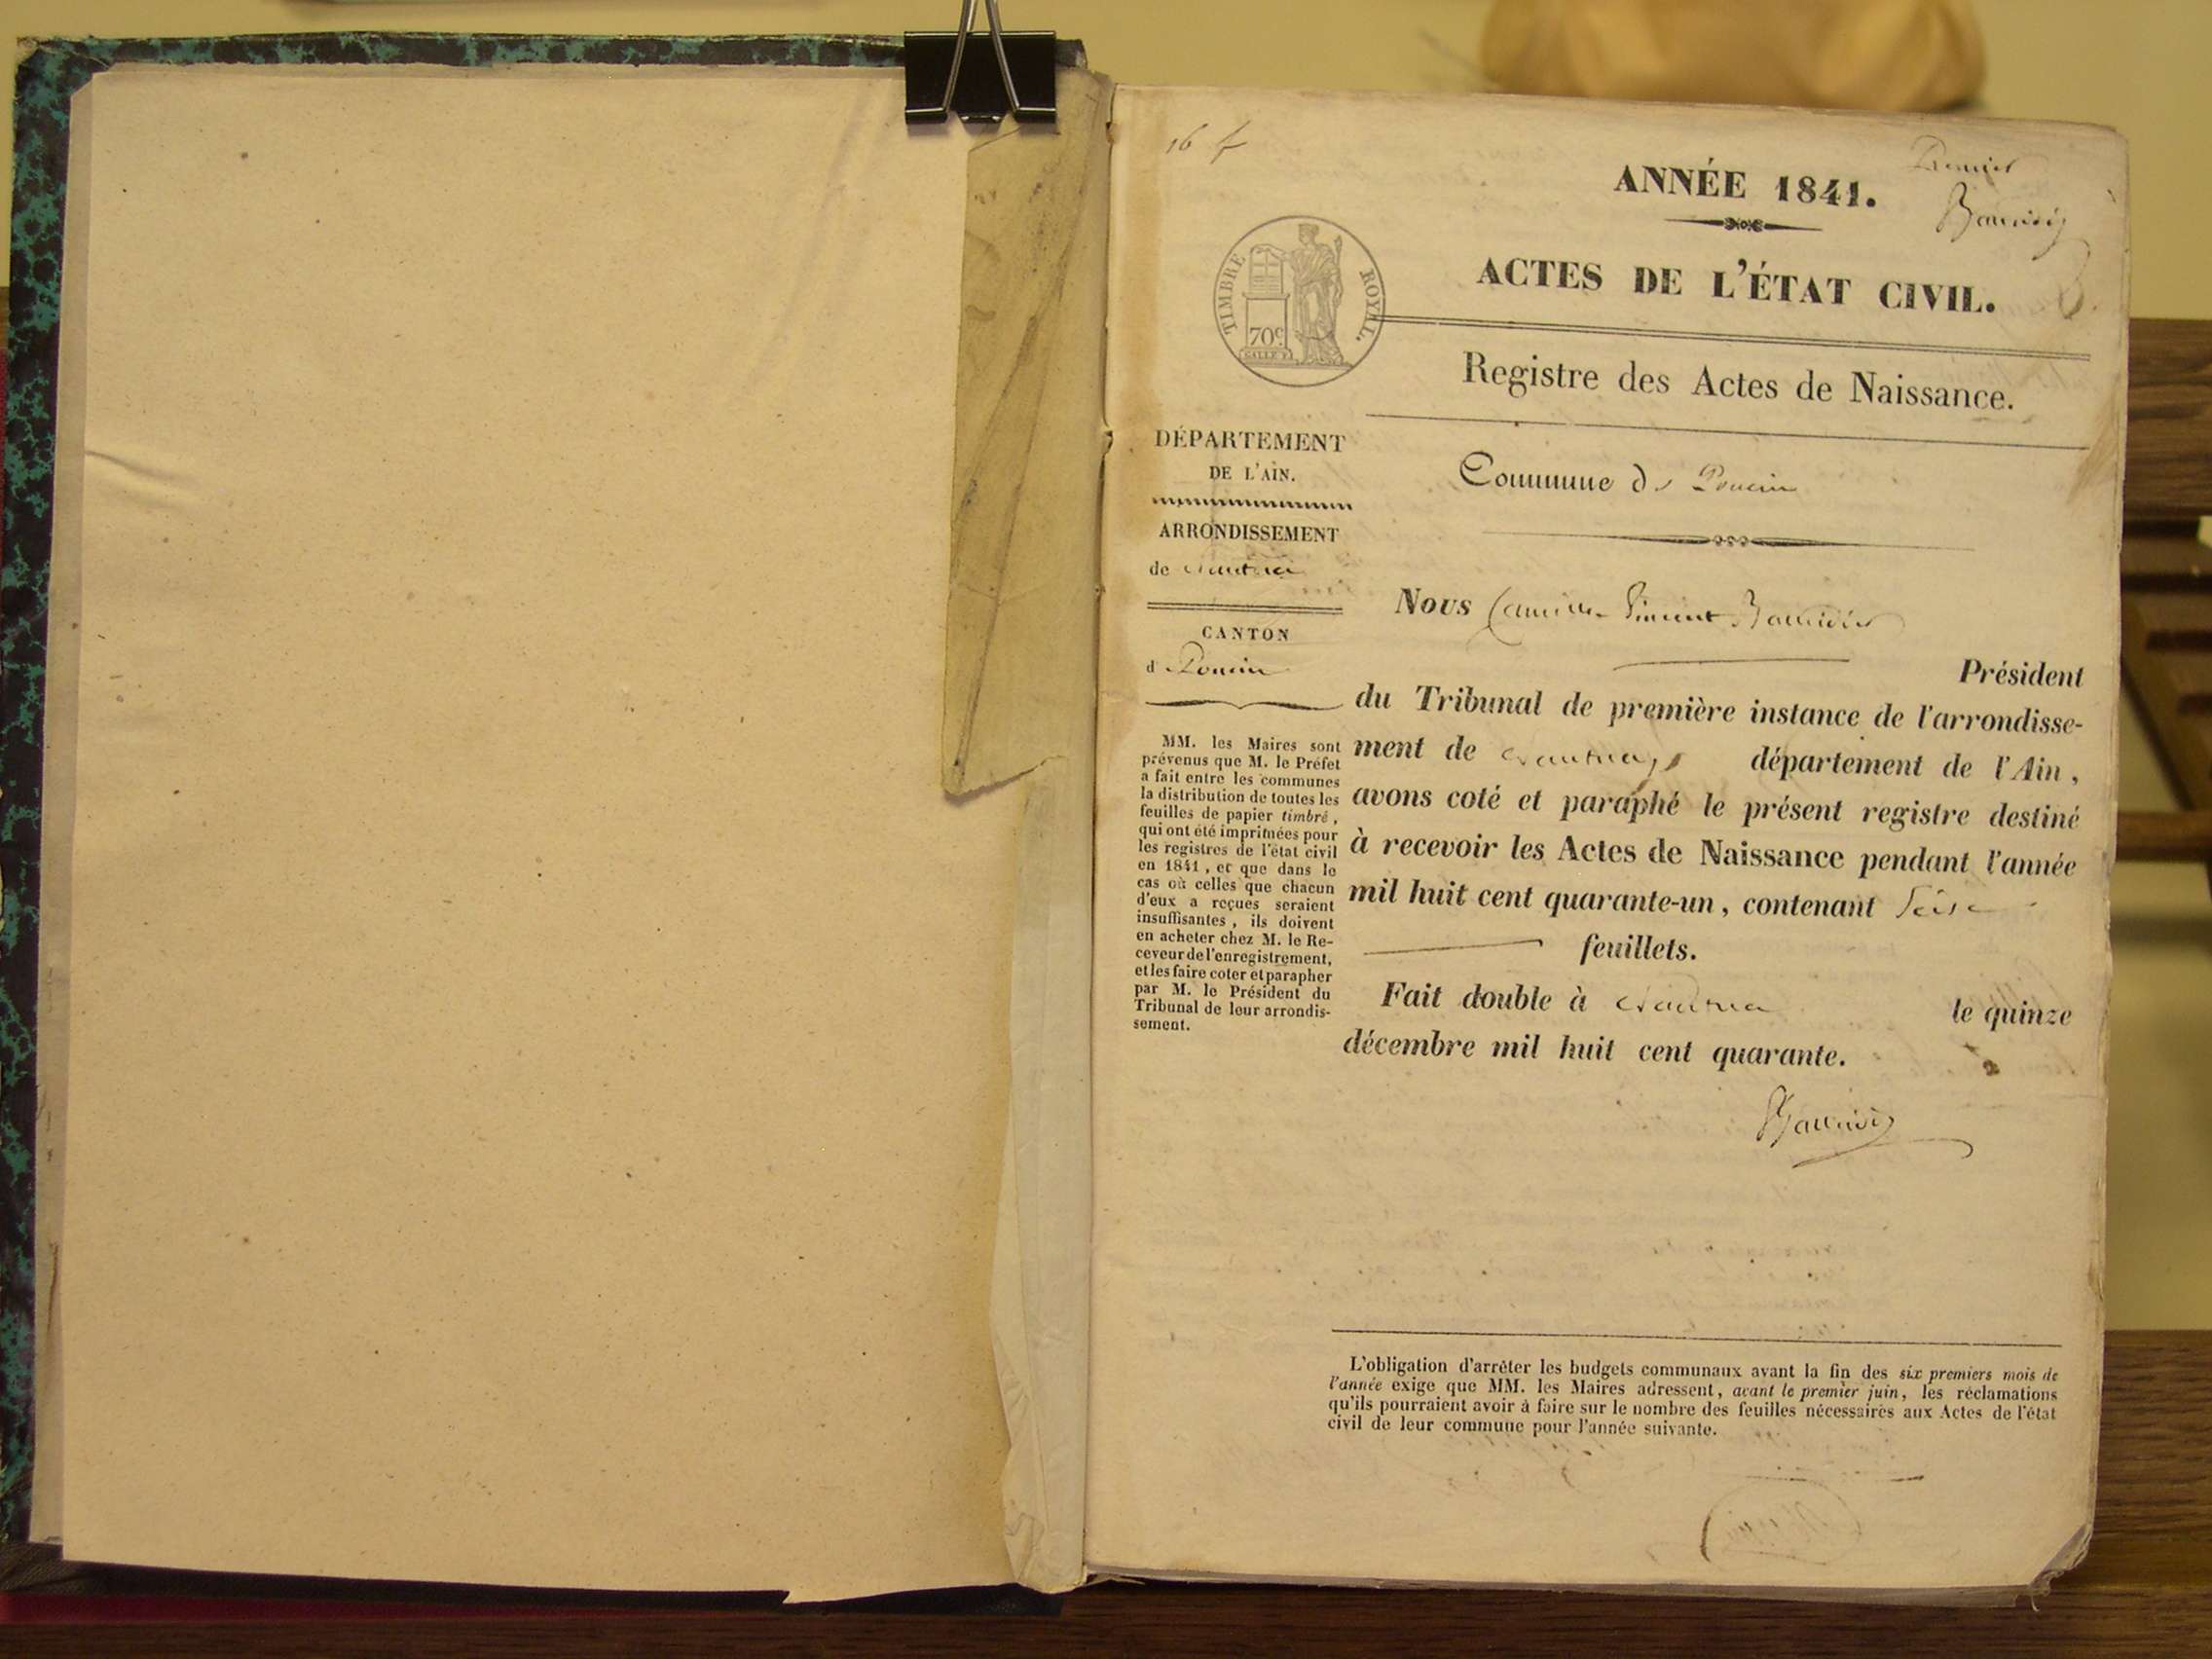 16 f
Premier
ANNÉE 1841.
ACTES DE L'ÉTAT CIVIL.
TIMBRE ROYAL.
70c
Registre des Actes de Naissance.
DÉPARTEMENT
DE L'AIN.
ARRONDISSEMENT
de Nantua
CANTON
d Poncin
MM. les Maires sont
prévenus que M. le Préfet
a fait entre les communes
la distribution de toutes les
feuilles de papier timbré,
qui ont été imprimées pour
les registres de l'état civil
en 1841, et que dans le
cas où celles que chacun
d'eux a reçues seraient
insuffisantes, ils doivent
en acheter chez M. le Re-
ceveur de l'enregistrement,
et les faire coter et parapher
par M. le Président du
Tribunal de leur arrondis-
sement.
Commune de Poncin
Nous Camille Vincent
Président
du Tribunal de première instance de l'arrondisse-
ment de Nantua, département de l'Ain,
avons coté et paraphé le présent registre destiné
à recevoir les Actes de Naissance pendant l'année
mil huit cent quarante-un, contenant Seize
feuillets.
Fait double à Nantua le quinze
décembre mil huit cent quarante.
L'obligation d'arrêter les budgets communaux avant la fin des six premiers mois de
l'année exige que MM. les Maires adressent, avant le premier juin, les réclamations
qu'ils pourraient avoir à faire sur le nombre des feuilles nécessaires aux Actes de l'état
civil de leur commune pour l'année suivante.